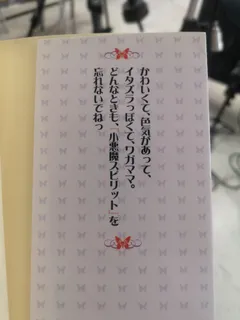 かわいくて、色気があって、
イタズラっぽくて、ワガママ。
どんなときも、「小悪魔スピリット」を
忘れないでねっ